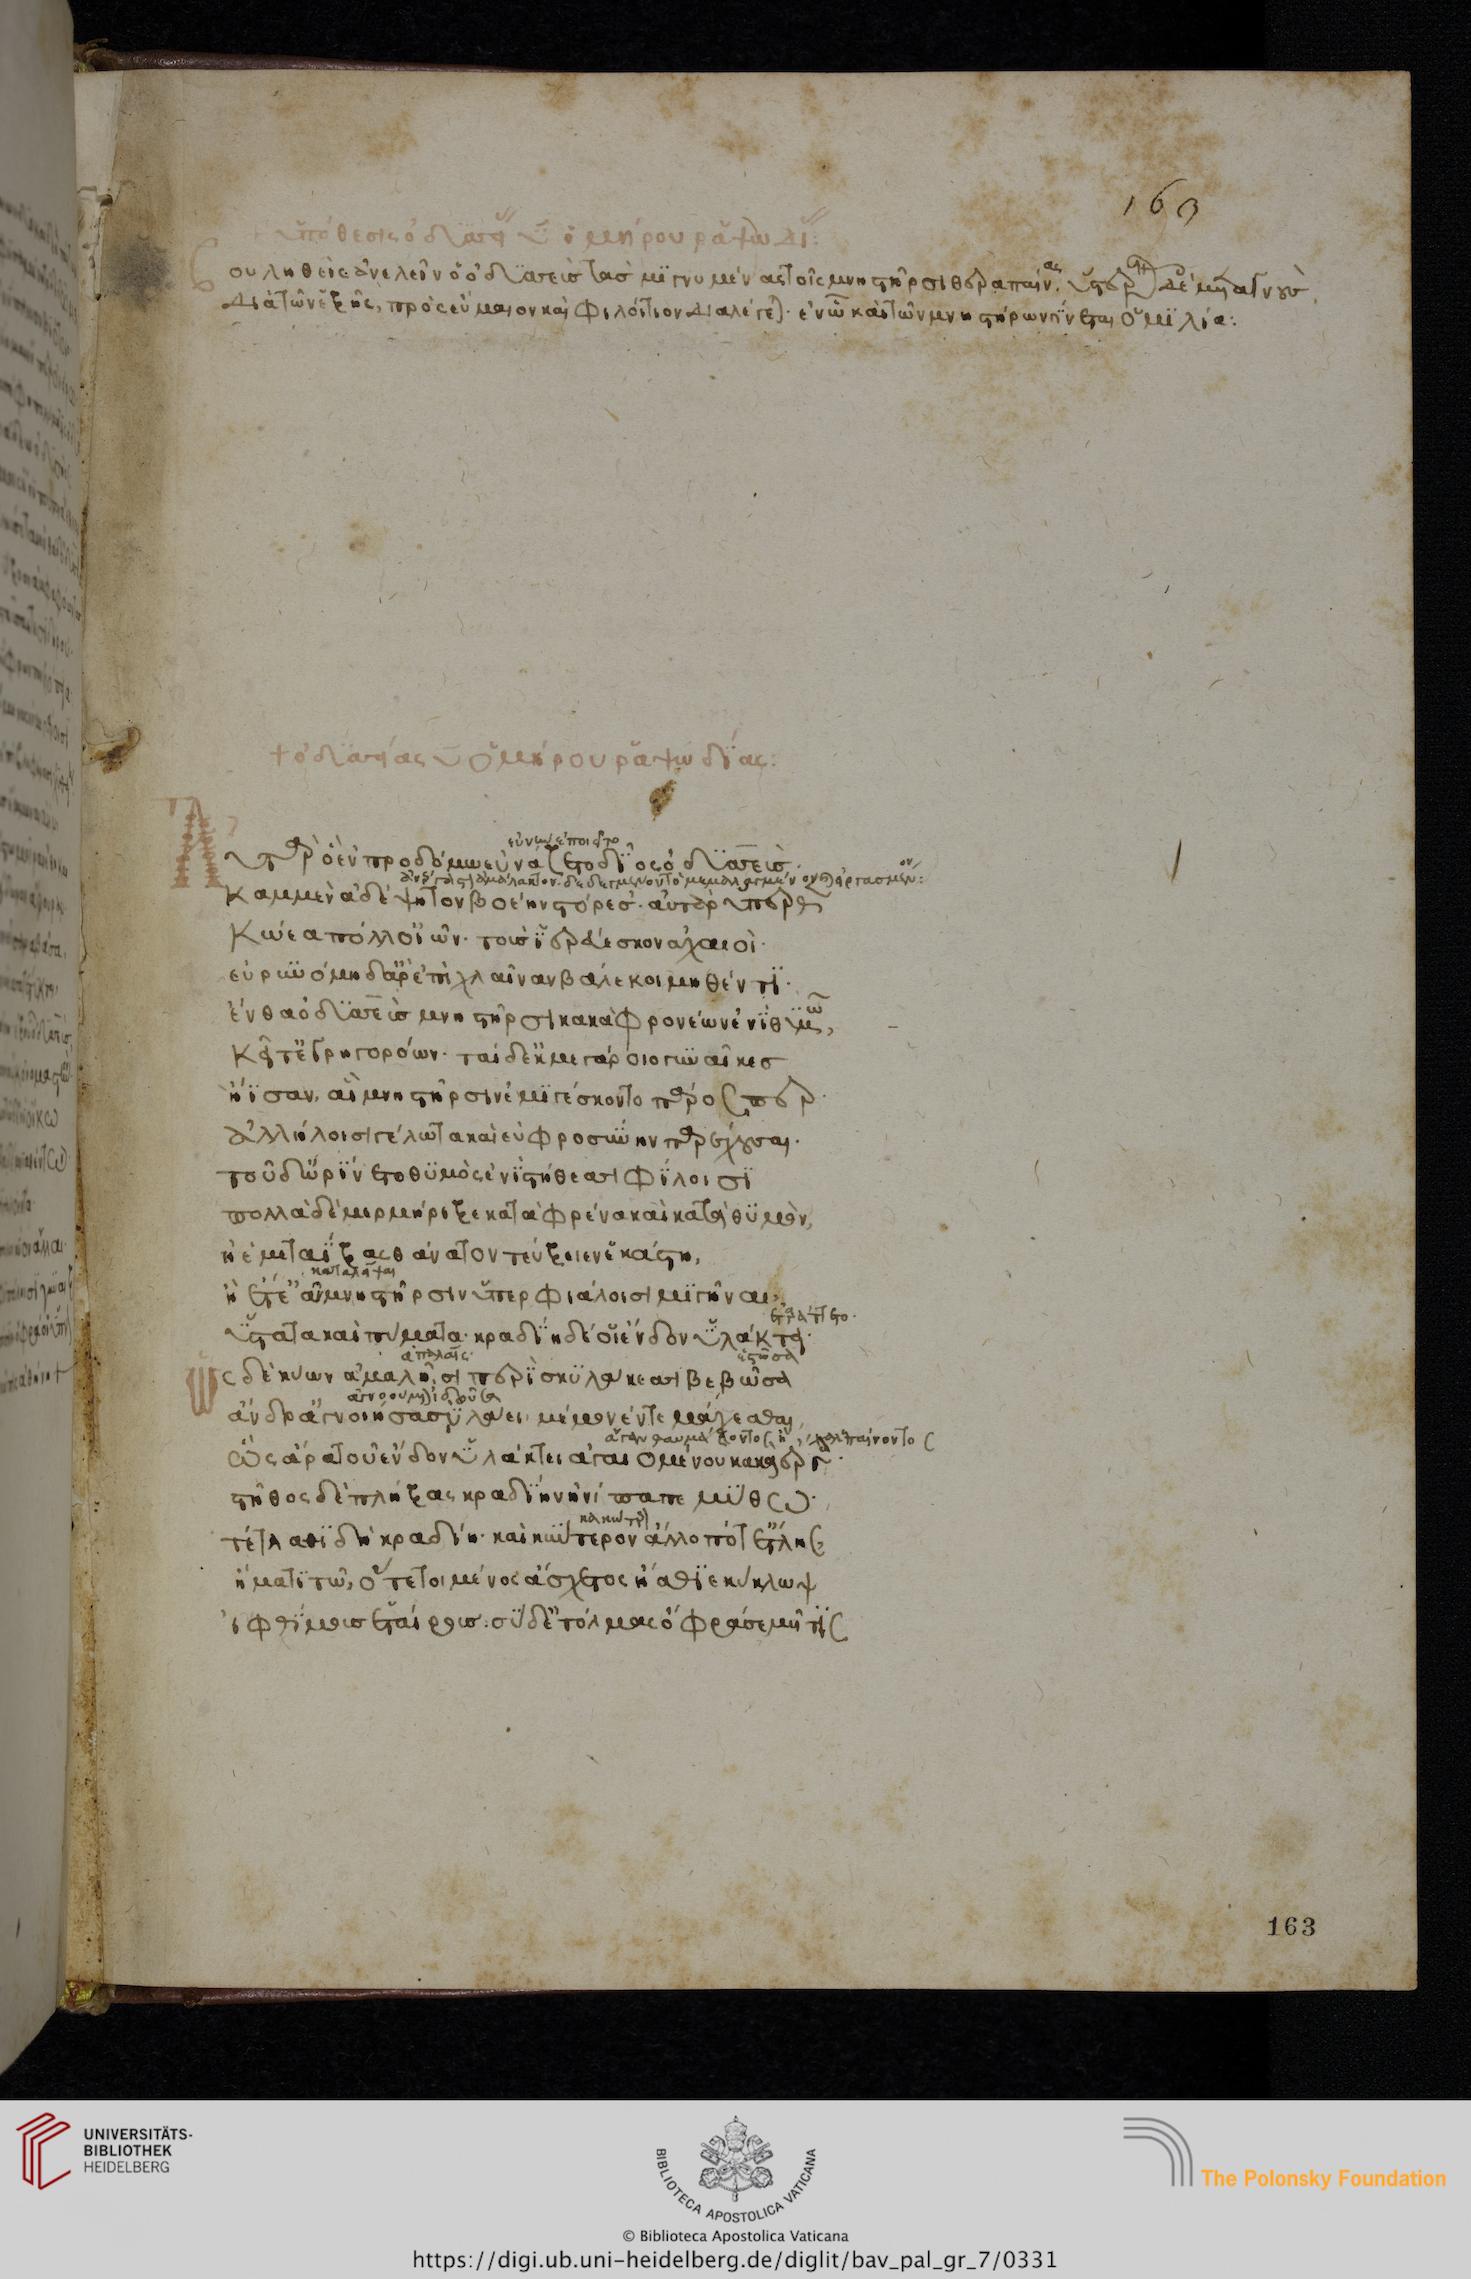 163
ὑπόθεσις ὀδυσσείας υ ὁμήρου ῥαψωδία:
βουληθεὶς ἀνελεῖν ὁ ὀδυσσεὺς τὰς μιγνυμένας τοῖς μνηστῆρσι θεραπαίνας, ὕστερον
διὰ τῶν ἑξῆς, πρὸς εὔμαιον καὶ φιλοίτιον διαλέγεται· ἐν ὧ καὶ τῶν μνηστήρων γίνεται ὁμιλία:
+ ὀδυσσείας υ ὁμήρου ῥαψωδίας:
Αὐτὰρ ὁ ἐν προδόμω εὐνάζετο δῖος ὀδυσσεύς·
καμμὲν ἀδέψητον βοέην στόρεσ'· αὐτὰρ ὕπερθε
κώεα πόλλ' οἰῶν· τοὺς ἱρεύεσκον ἀχαιοί·
εὐρυνόμη δ' ἄρ' ἐπὶ χλαῖναν βάλε κοιμηθέντι·
ἔνθα ὀδυσσεὺς μνηστῆρσι κακὰ φρονέων ἐνὶ θυμῶ,
κεῖτ' ἐγρηγορόων· ταὶ δ' ἐκ μεγάροιο γυναῖκες
ἤϊσαν, αἳ μνηστῆρσιν ἐμισγέσκοντο πάρος περ·
ἀλλήλοισι γέλωτα καὶ εὐφροσύνην παρέχουσαι·
τοῦ δ' ὠρίνετο θυμὸς ἐνὶ στήθεσσι φίλοισι
πολλὰ δὲ μερμήριξε κατὰ φρένα καὶ κατὰ θυμὸν,
ἠὲ μεταΐξας θάνατον τεύξειεν ἑκάστη,
ἢ ἔτ' ἐᾶ μνηστῆρσιν ὑπερφιάλοισι μιγῆναι,
ὕστατα καὶ πύματα· κραδίη δέ οἱ ἔνδον ὑλάκτει·
ὡς δὲ κύων ἀμαλῆσι περὶ σκυλάκεσσι βεβῶσα
ἄνδρ' ἀγνοιήσασ' ὑλάει, μέμονέν τε μάχεσθαι,
ὥς ἄρα τοῦ ἔνδον ὑλάκτει ἀγαιομένου κακὰ ἔργα·
στῆθος δὲ πλήξας κραδίην ἠνίπαπε μύθω·
τέτλαθι δὴ κραδίη· καὶ κύντερον ἄλλο πότ' ἔτλης
ἤματι τῶ, ὅτε τοι μένος ἄσχετος ἤσθιε κύκλωψ
ἰφθίμους ἑταίρους: σὺ δ' ἐτόλμας ὄφρά σε μῆτις
163
UNIVERSITÄTS-
BIBLIOTHEK
HEIDELBERG
BIBLIOTECA APOSTOLICA VATICANA
The Polonsky Foundation
© Biblioteca Apostolica Vaticana
https://digi.ub.uni-heidelberg.de/diglit/bav_pal_gr_7/0331